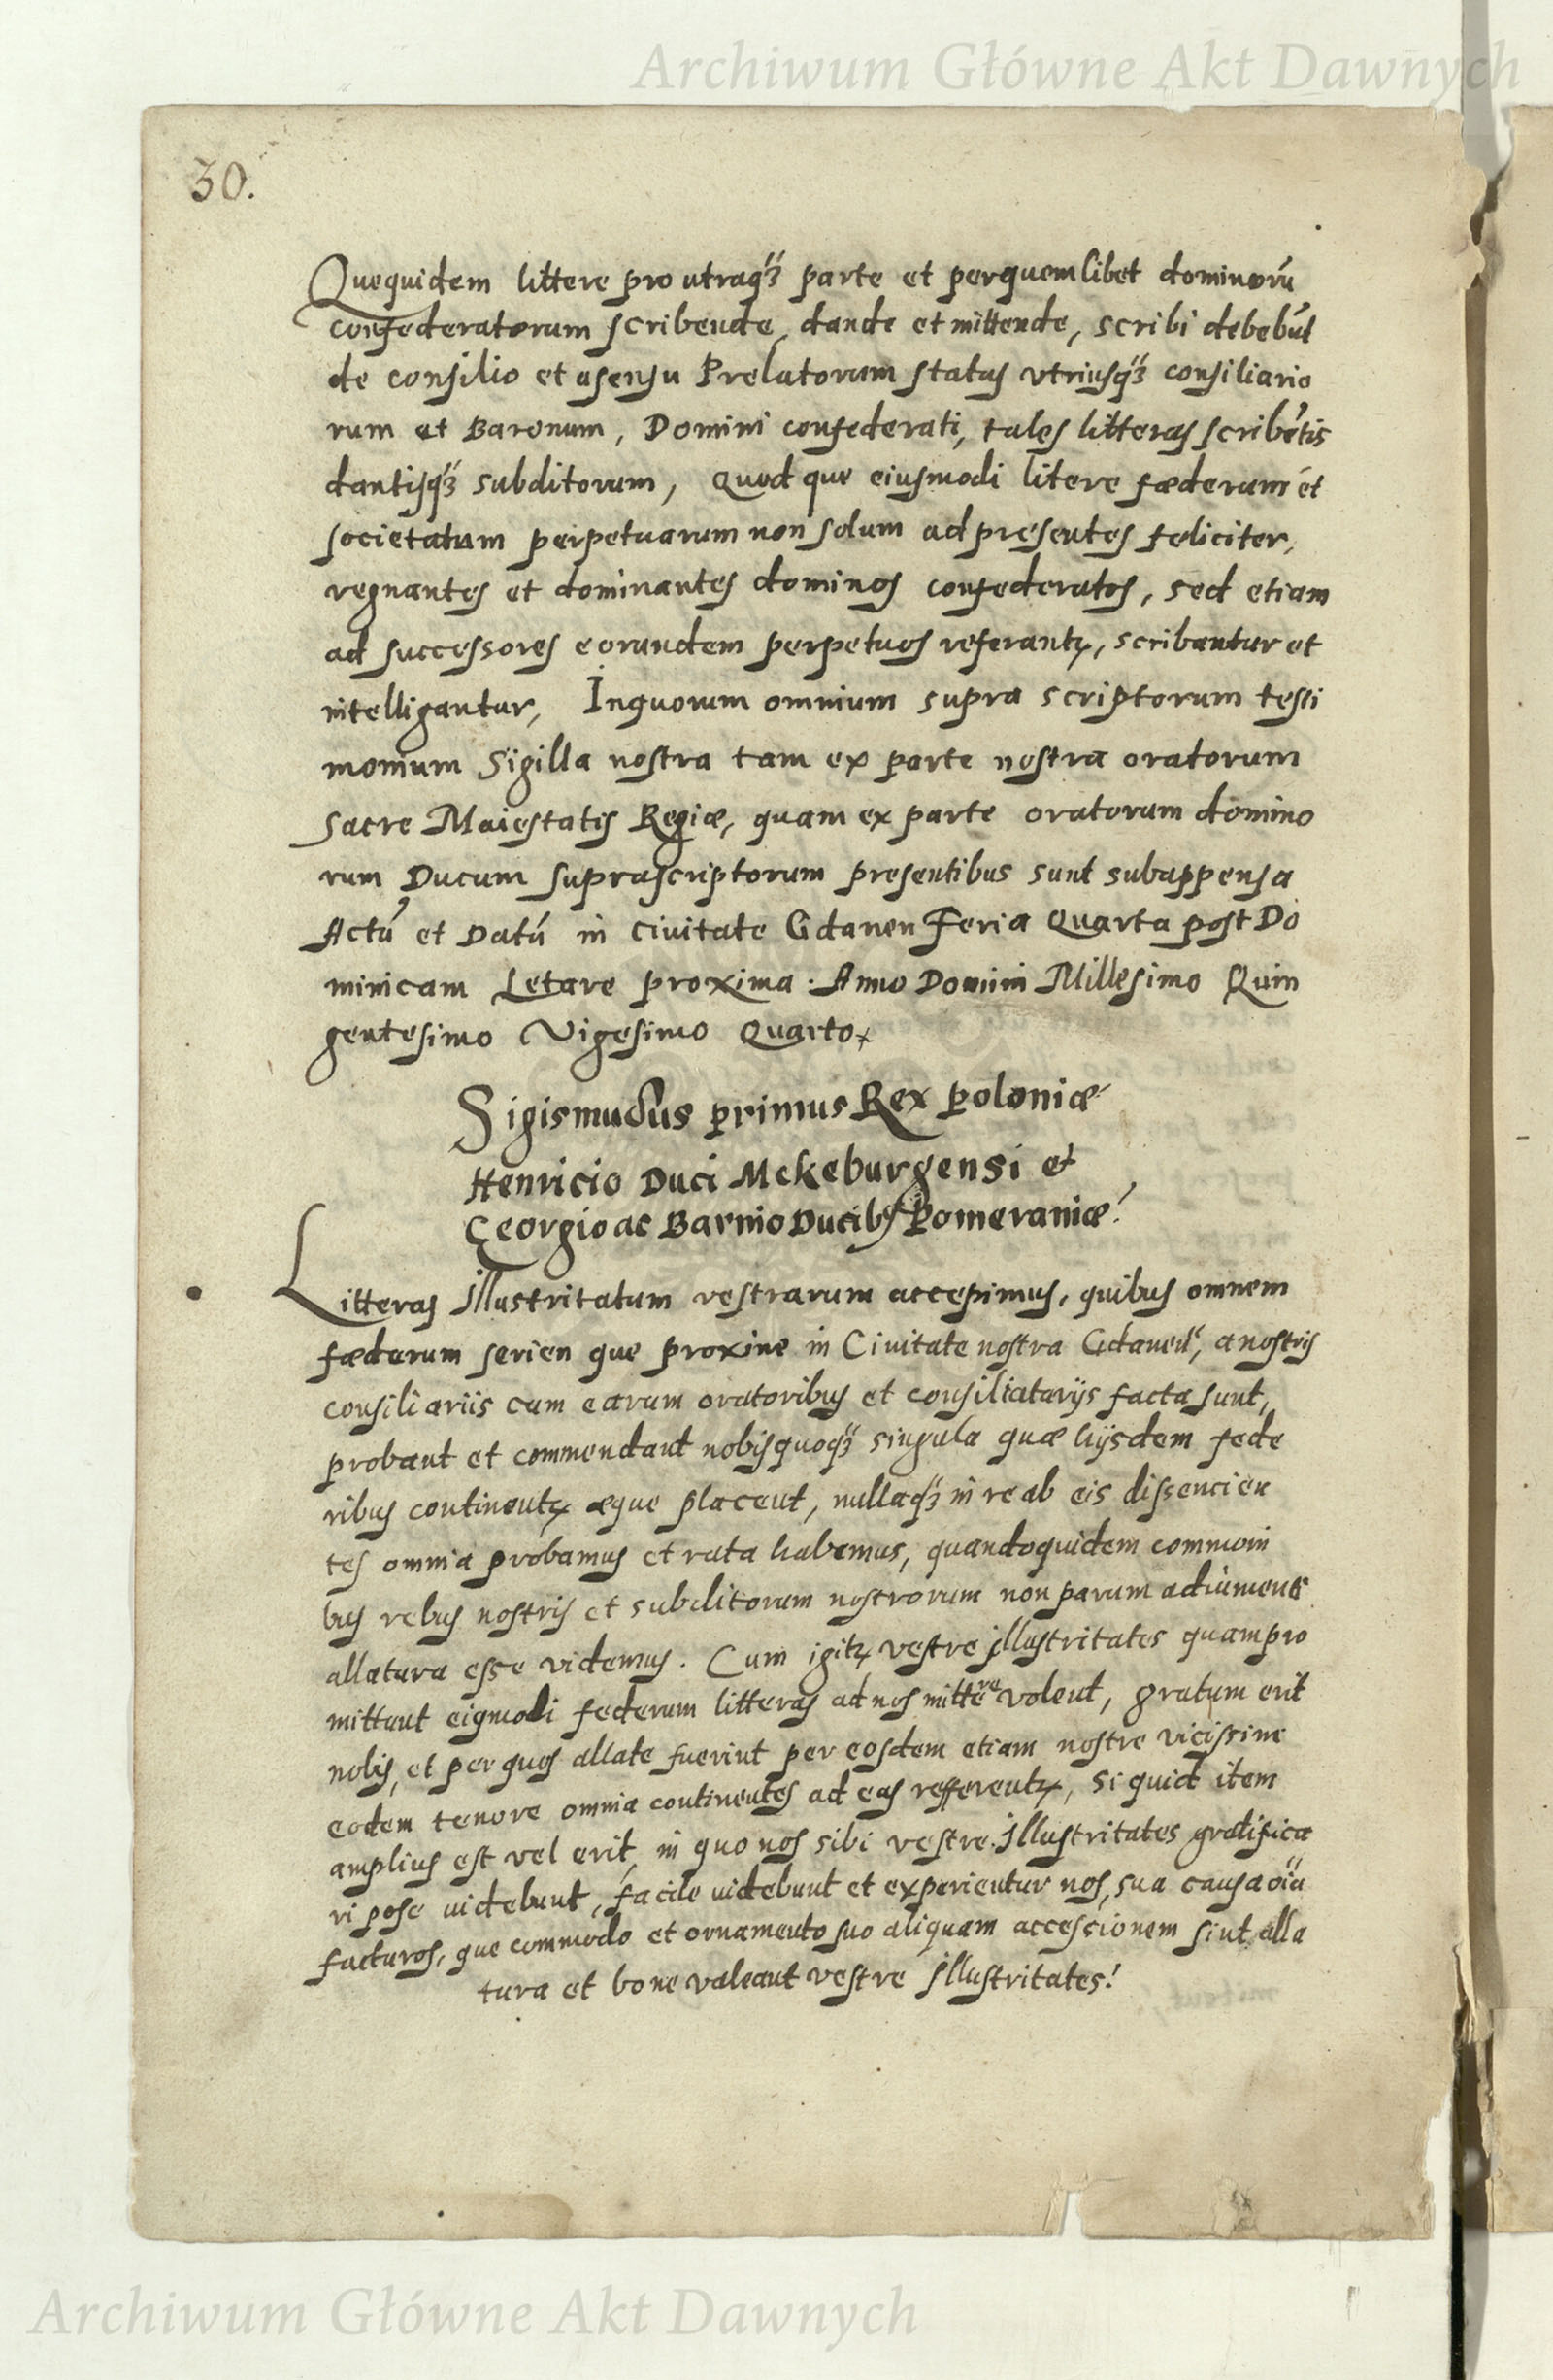 Archiwum Główne Akt Dawnych
30.
Quequidem littere pro utraqȝ parte et perquemlibet dominorū
confederatorum scribende, dande et mittende, scribi debebūt
de consilio et asensu Prelatorum status utriusqȝ consiliario
rum et Baronum, Domini confederati, tales litteras scribētis
dantisqȝ subditorum, Quod que eiusmodi litere fœderum et
societatum perpetuarum non solum ad presentes feliciter,
regnantes et dominantes dominos confederatos, sed etiam
ad successores eorundem perpetuos referantꝝ, scribantur et
intelligantur, Inquorum omnium supra scriptorum testi
monium Sigilla nostra tam ex parte nostra oratorum
Sacre Maiestatis Regiæ, quam ex parte oratorum domino
rum Ducum suprascriptorum presentibus sunt subappensa
Actū et Datū in Civitate Gdanen Feria Quarta post Do
minicam Letare proxima. Anno Domini Millesimo Quin
gentesimo Vigesimo Quarto
Sigismudus primus Rex Poloniæ
Henricio Duci Mekeburgensi et
Georgio ac Barnio Ducibꝰ Pomeraniæ
Litteras Illustritatum vestrarum accepimus, quibus omnem
fœderum serien que proxine in Civitate nostra Gdanen, a nostris
consiliariis cum earum oratoribus et consiliatariis facta sunt,
probant et commendant nobisquoqȝ singula quæ hijsdem fede
ribus continentꝝ æque placent, nullaqȝ in re ab eis dissencien
tes omnia probamus et rata habemus, quandoquidem communi
bus rebus nostris et subditorum nostrorum non parum adiumenti
allatura esse videmus. Cum igitꝝ vestre Illustritates quampro
mittunt eiqmodi federum litteras ad nos mittere volent, gratum erit
nobis, et per quos allate fuerint per eosdem etiam nostre vicissim
eodem tenore omnia continentes ad eas refferentꝝ, si quid item
amplius est vel erit, in quo nos sibi vestre Illustritates gratifica
ri pose videbunt, facile videbunt et experientur nos, sua causa oīa
facturos, que commodo et ornamento suo aliquam accessionem sint alla
tura et bone valeant vestre Illustritates!
Archiwum Główne Akt Dawnych